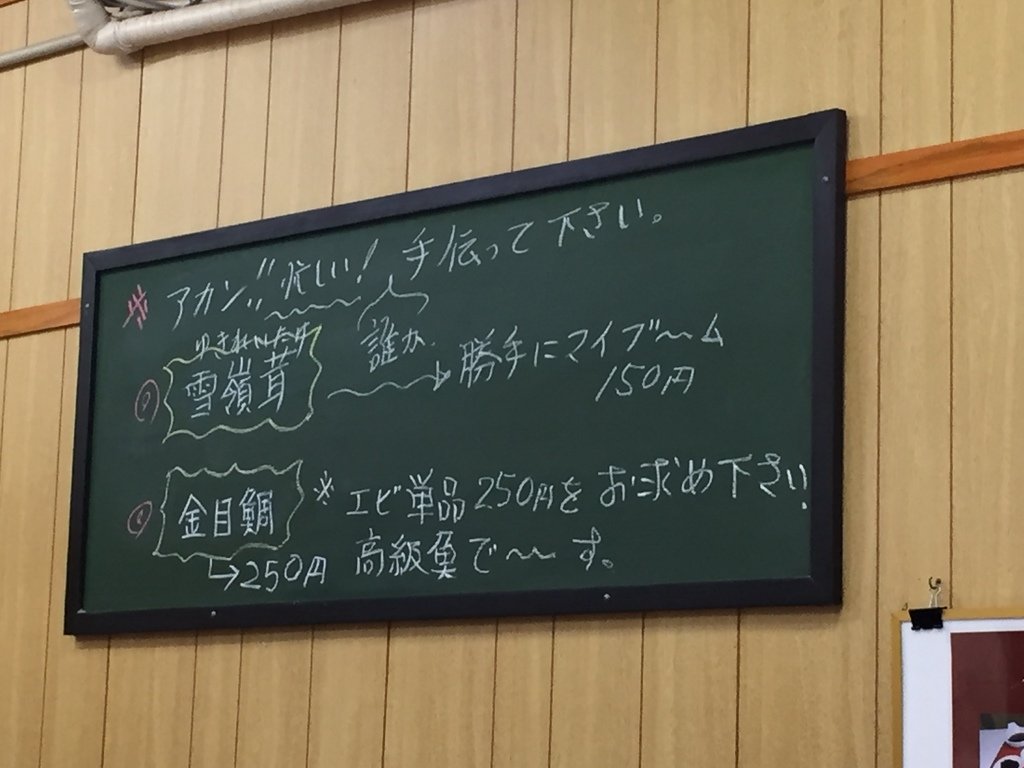 ※ アカン!! 忙しい! 手伝って下さい。
誰か
ゆきれいたけ
① 雪嶺茸 → 勝手にマイブ〜ム
150円
② 金目鯛 ※ エビ単品250円をお求め下さい!
→250円 高級魚で〜す。